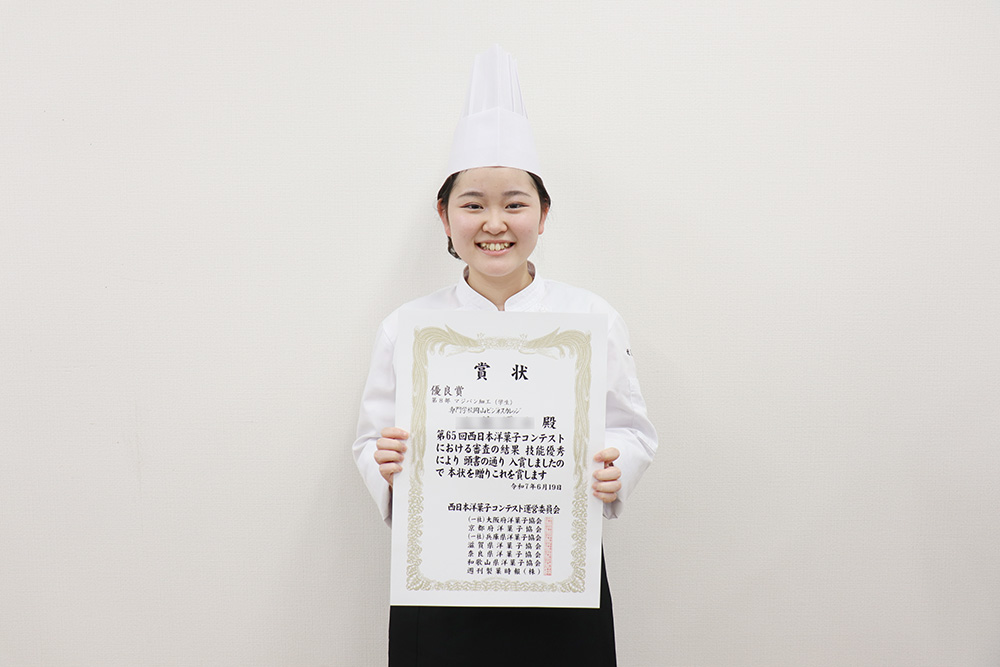 賞状
優良賞
第Ⅱ部 マジパン細工（学生）
専門学校岡山ビジネスカレッジ
殿
第65回西日本洋菓子コンテスト
における審査の結果 技能優秀
により 頭書の通り 入賞しましたの
で 本状を贈りこれを賞します
令和7年6月19日
西日本洋菓子コンテスト運営委員会
(一社)大阪府洋菓子協会
京都府洋菓子協会
(一社)兵庫県洋菓子協会
滋賀県洋菓子協会
奈良県洋菓子協会
和歌山県洋菓子協会
週刊製菓時報(株)